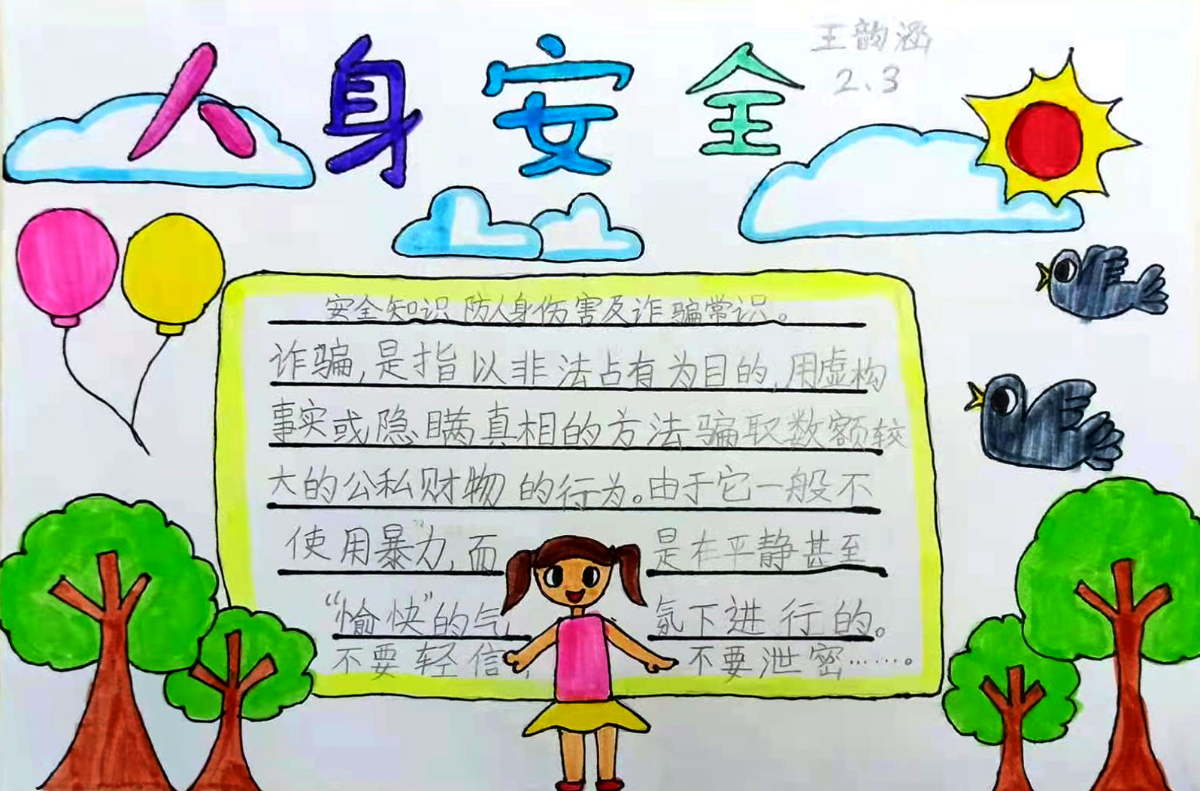 人身安全
王韵涵
2.3
安全知识 防人身伤害及诈骗常识。
诈骗,是指以非法占有为目的,用虚构
事实或隐瞒真相的方法骗取数额较
大的公私财物的行为。由于它一般不
使用暴力,而是在平静甚至
“愉快”的气氛下进行的。
不要轻信,不要泄密……。